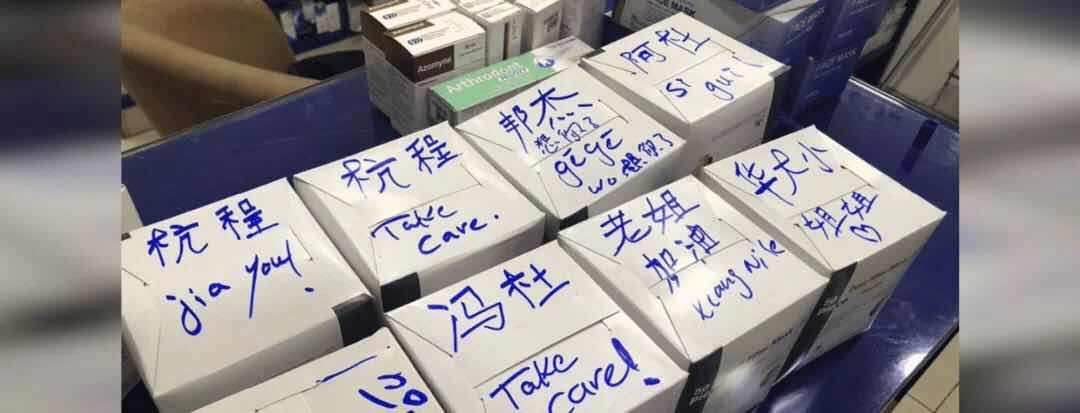 Azomyne
Arthrodont
FACE MASK
FACE MASK
阿杜
si gui
邦杰
想你了
gēgē
wo 想你了
杭程
Take
care.
华大小
姐姐♡
杭程
jia you!
老姐
加油
xiang ni le
冯杜
Take
care!